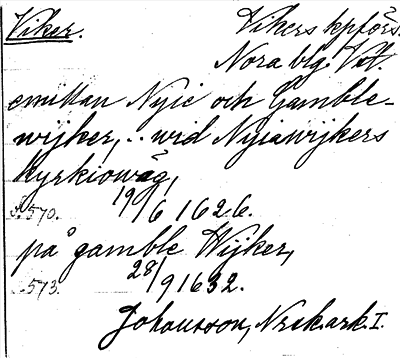 Viker. Vikers kpförs.
Nora blg. Vstm.
emittan Nyie och Gamble-
wijker, .. wid Nyiawijkers
kyrkiowäg,
S. 570. 19/6 1626.
på gamble Wijker,
S. 573. 28/9 1632.
Johansson, Nrik.ark. I.